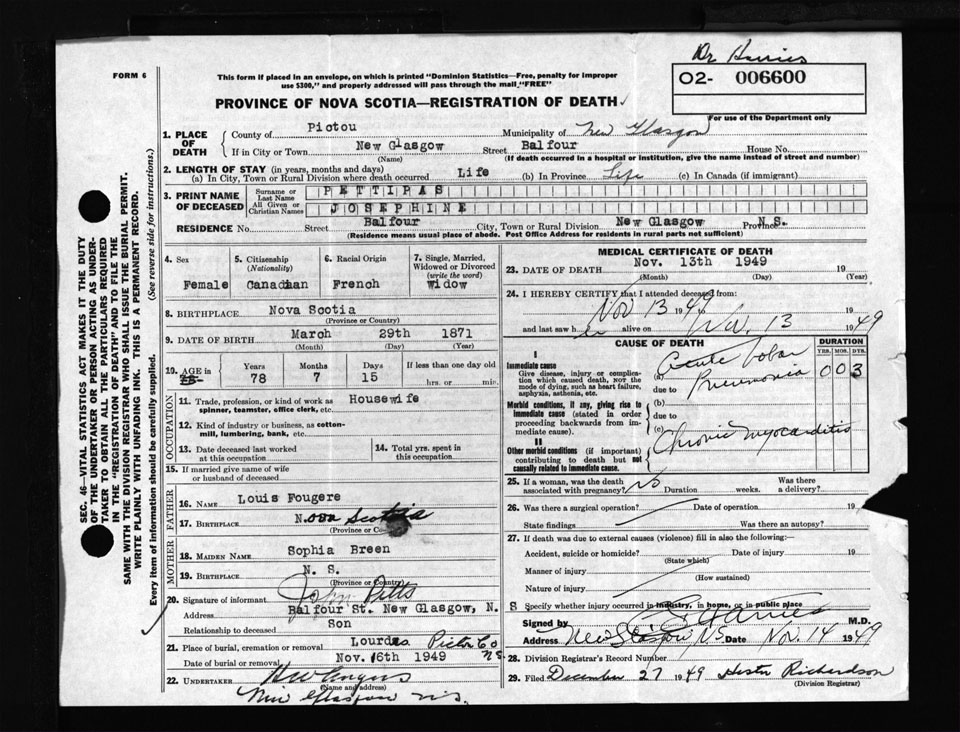 Dr Harries
FORM 6
This form if placed in an envelope, on which is printed "Dominion Statistics—Free, penalty for improper
use $300," and properly addressed will pass through the mail "FREE"
O2- 006600
For use of the Department only
PROVINCE OF NOVA SCOTIA—REGISTRATION OF DEATH
1. PLACE OF DEATH
County of Pictou Municipality of New Glasgow
If in City or Town New Glasgow Street Balfour House No.
(Name) (If death occurred in a hospital or institution, give the name instead of street and number)
2. LENGTH OF STAY (in years, months and days)
(a) In City, Town or Rural Division where death occurred Life (b) In Province Life (c) In Canada (if immigrant)
3. PRINT NAME OF DECEASED
Surname or Last Name PETTIPAS
All Given or Christian Names JOSEPHINE
RESIDENCE No. Street Balfour City, Town or Rural Division New Glasgow Province N.S.
(Residence means usual place of abode. Post Office Address for residents in rural parts not sufficient)
4. Sex
Female
5. Citizenship
(Nationality)
Canadian
6. Racial Origin
French
7. Single, Married,
Widowed or Divorced
(write the word)
Widow
8. BIRTHPLACE Nova Scotia
(Province or Country)
9. DATE OF BIRTH March 29th 1871
(Month) (Day) (Year)
10. AGE in
Years Months Days If less than one day old
78 7 15 hrs. or min.
OCCUPATION
11. Trade, profession, or kind of work as Housewife
spinner, teamster, office clerk, etc.
12. Kind of industry or business, as cotton-
mill, lumbering, bank, etc.
13. Date deceased last worked
at this occupation
14. Total yrs. spent in
this occupation
15. If married give name of wife
or husband of deceased
FATHER
16. NAME Louis Fougere
17. BIRTHPLACE Nova Scotia
(Province or Country)
MOTHER
18. MAIDEN NAME Sophia Breen
19. BIRTHPLACE N. S.
(Province or Country)
20. Signature of informant John Pitts
Address Balfour St. New Glasgow, N.
Relationship to deceased Son
21. Place of burial, cremation or removal Lourdes Pictou Co NS
Date of burial or removal Nov. 16th 1949
22. UNDERTAKER H W Angus
(Name and address)
New Glasgow N.S.
MEDICAL CERTIFICATE OF DEATH
23. DATE OF DEATH Nov. 13th 1949 19
(Month) (Day) (Year)
24. I HEREBY CERTIFY that I attended deceased from:
Nov 13 1949 19
and last saw her alive on Nov. 13 1949
CAUSE OF DEATH
DURATION
YRS. MOS. DYS.
I
Immediate cause
Give disease, injury or complica-
tion which caused death, not the
mode of dying, such as heart failure,
asphyxia, asthenia, etc.
(a) Acute lobar
due to Pneumonia 0 0 3
Morbid conditions, if any, giving rise to
immediate cause (stated in order
proceeding backwards from im-
mediate cause).
(b)
due to
(c)
II
Other morbid conditions (if important)
contributing to death but not
causally related to immediate cause.
Chronic Myocarditis
25. If a woman, was the death
associated with pregnancy? No Duration weeks. Was there
a delivery?
26. Was there a surgical operation? Date of operation 19
State findings Was there an autopsy?
27. If death was due to external causes (violence) fill in also the following:—
Accident, suicide or homicide? Date of injury 19
(State which)
Manner of injury
(How sustained)
Nature of injury
S Specify whether injury occurred in industry, in home, or in public place
Signed by Harries M.D.
Address New Glasgow NS Date Nov. 14 1949
28. Division Registrar's Record Number
29. Filed December 27 1949 Hester Richardson
(Division Registrar)
SEC. 46—VITAL STATISTICS ACT MAKES IT THE DUTY
OF THE UNDERTAKER OR PERSON ACTING AS UNDER-
TAKER TO OBTAIN ALL THE PARTICULARS REQUIRED
IN THE "REGISTRATION OF DEATH" AND TO FILE THE
SAME WITH THE DIVISION REGISTRAR WHO SHALL ISSUE THE BURIAL PERMIT.
WRITE PLAINLY WITH UNFADING INK. THIS IS A PERMANENT RECORD.
Every item of information should be carefully supplied. (See reverse side for instructions.)